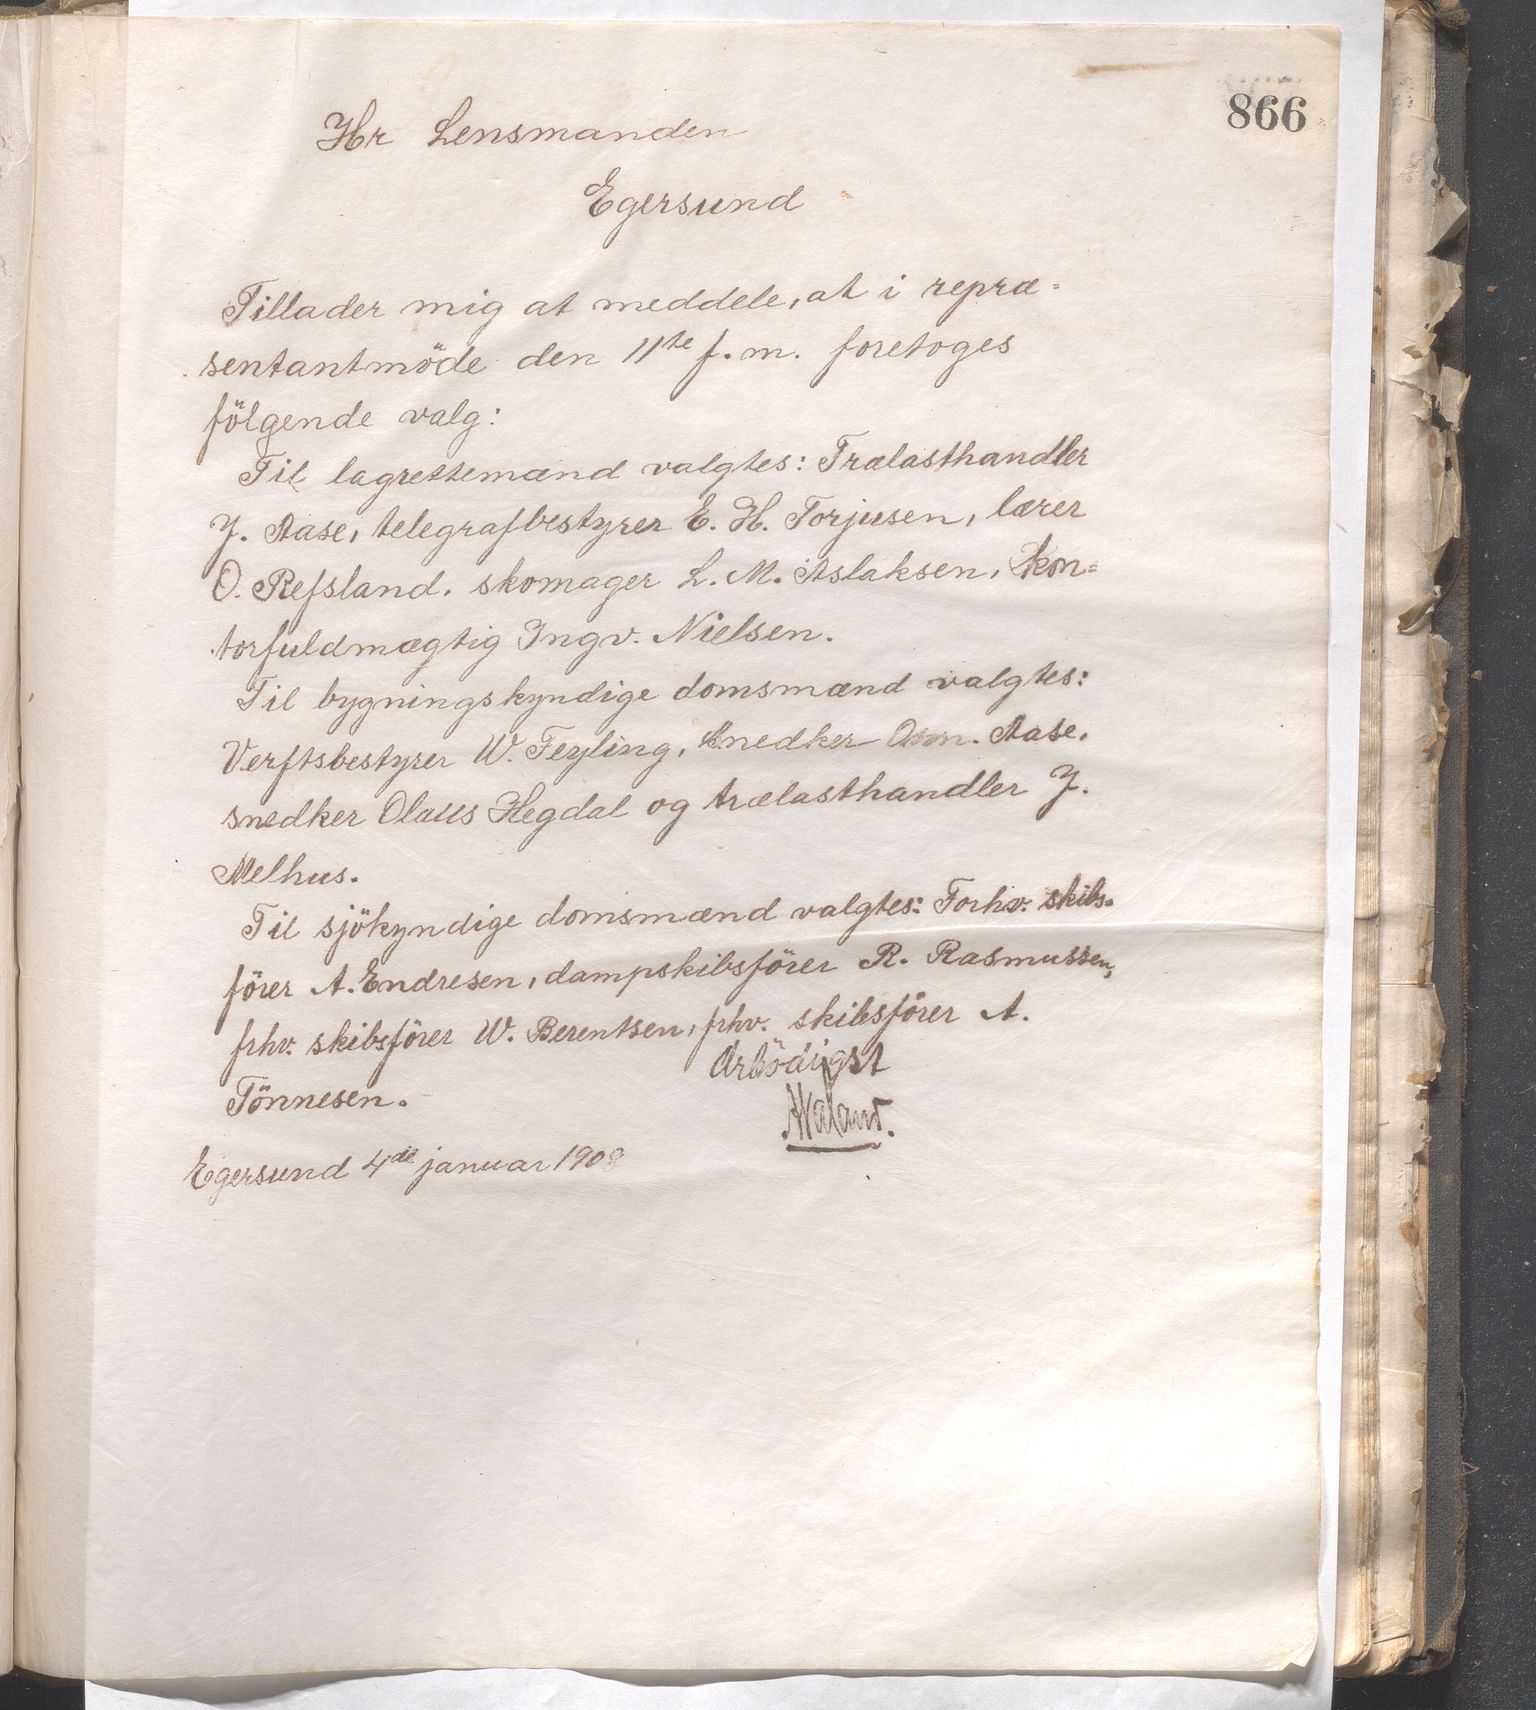 866
Hr Lensmanden
Egersund
Tillader mig at meddele, at i repræ-
sentantmöde den 11te f. m. foretoges
fölgende valg:
Til lagrettemænd valgtes: Trælasthandler
J. Aase, telegrafbestyrer E. H. Torjusen, lærer
O. Refsland, skomager L. M. Aslaksen, kon=
torfuldmægtig Ingv. Nielsen.
Til bygningskyndige domsmænd valgtes:
Verftsbestyrer W. Feyling, snedker Osm. Aase,
snedker Olaus Hegdal og trælasthandler J.
Melhus.
Til sjökyndige domsmænd valgtes: Forhv. skibs-
förer A. Endresen, dampskibsförer R. Rasmussen,
fhv. skibsförer W. Berentsen, fhv. skibsförer A.
Tönnesen.
Ærbödigst
Egersund 4de januar 1908